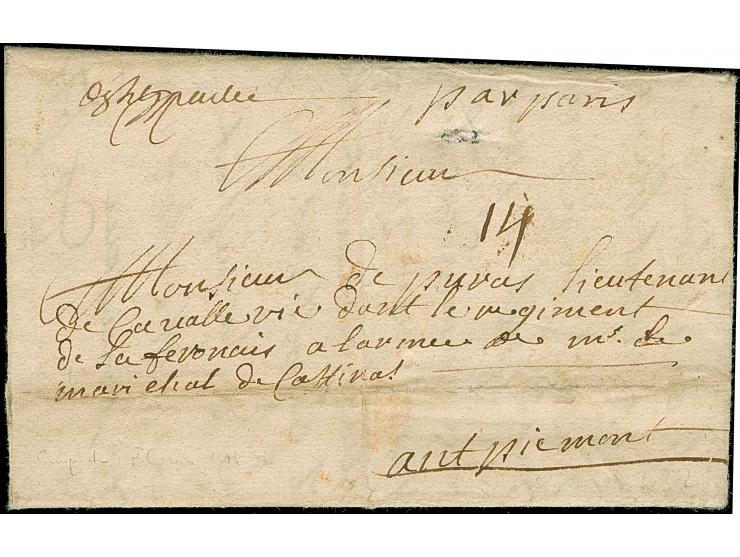 par paris
Monsieur
14
Monsieur de puras lieutenant
de Cavallerie dant le regiment
de La feronais a larmee de mr. le
marichal de Cattinat
ant piemont